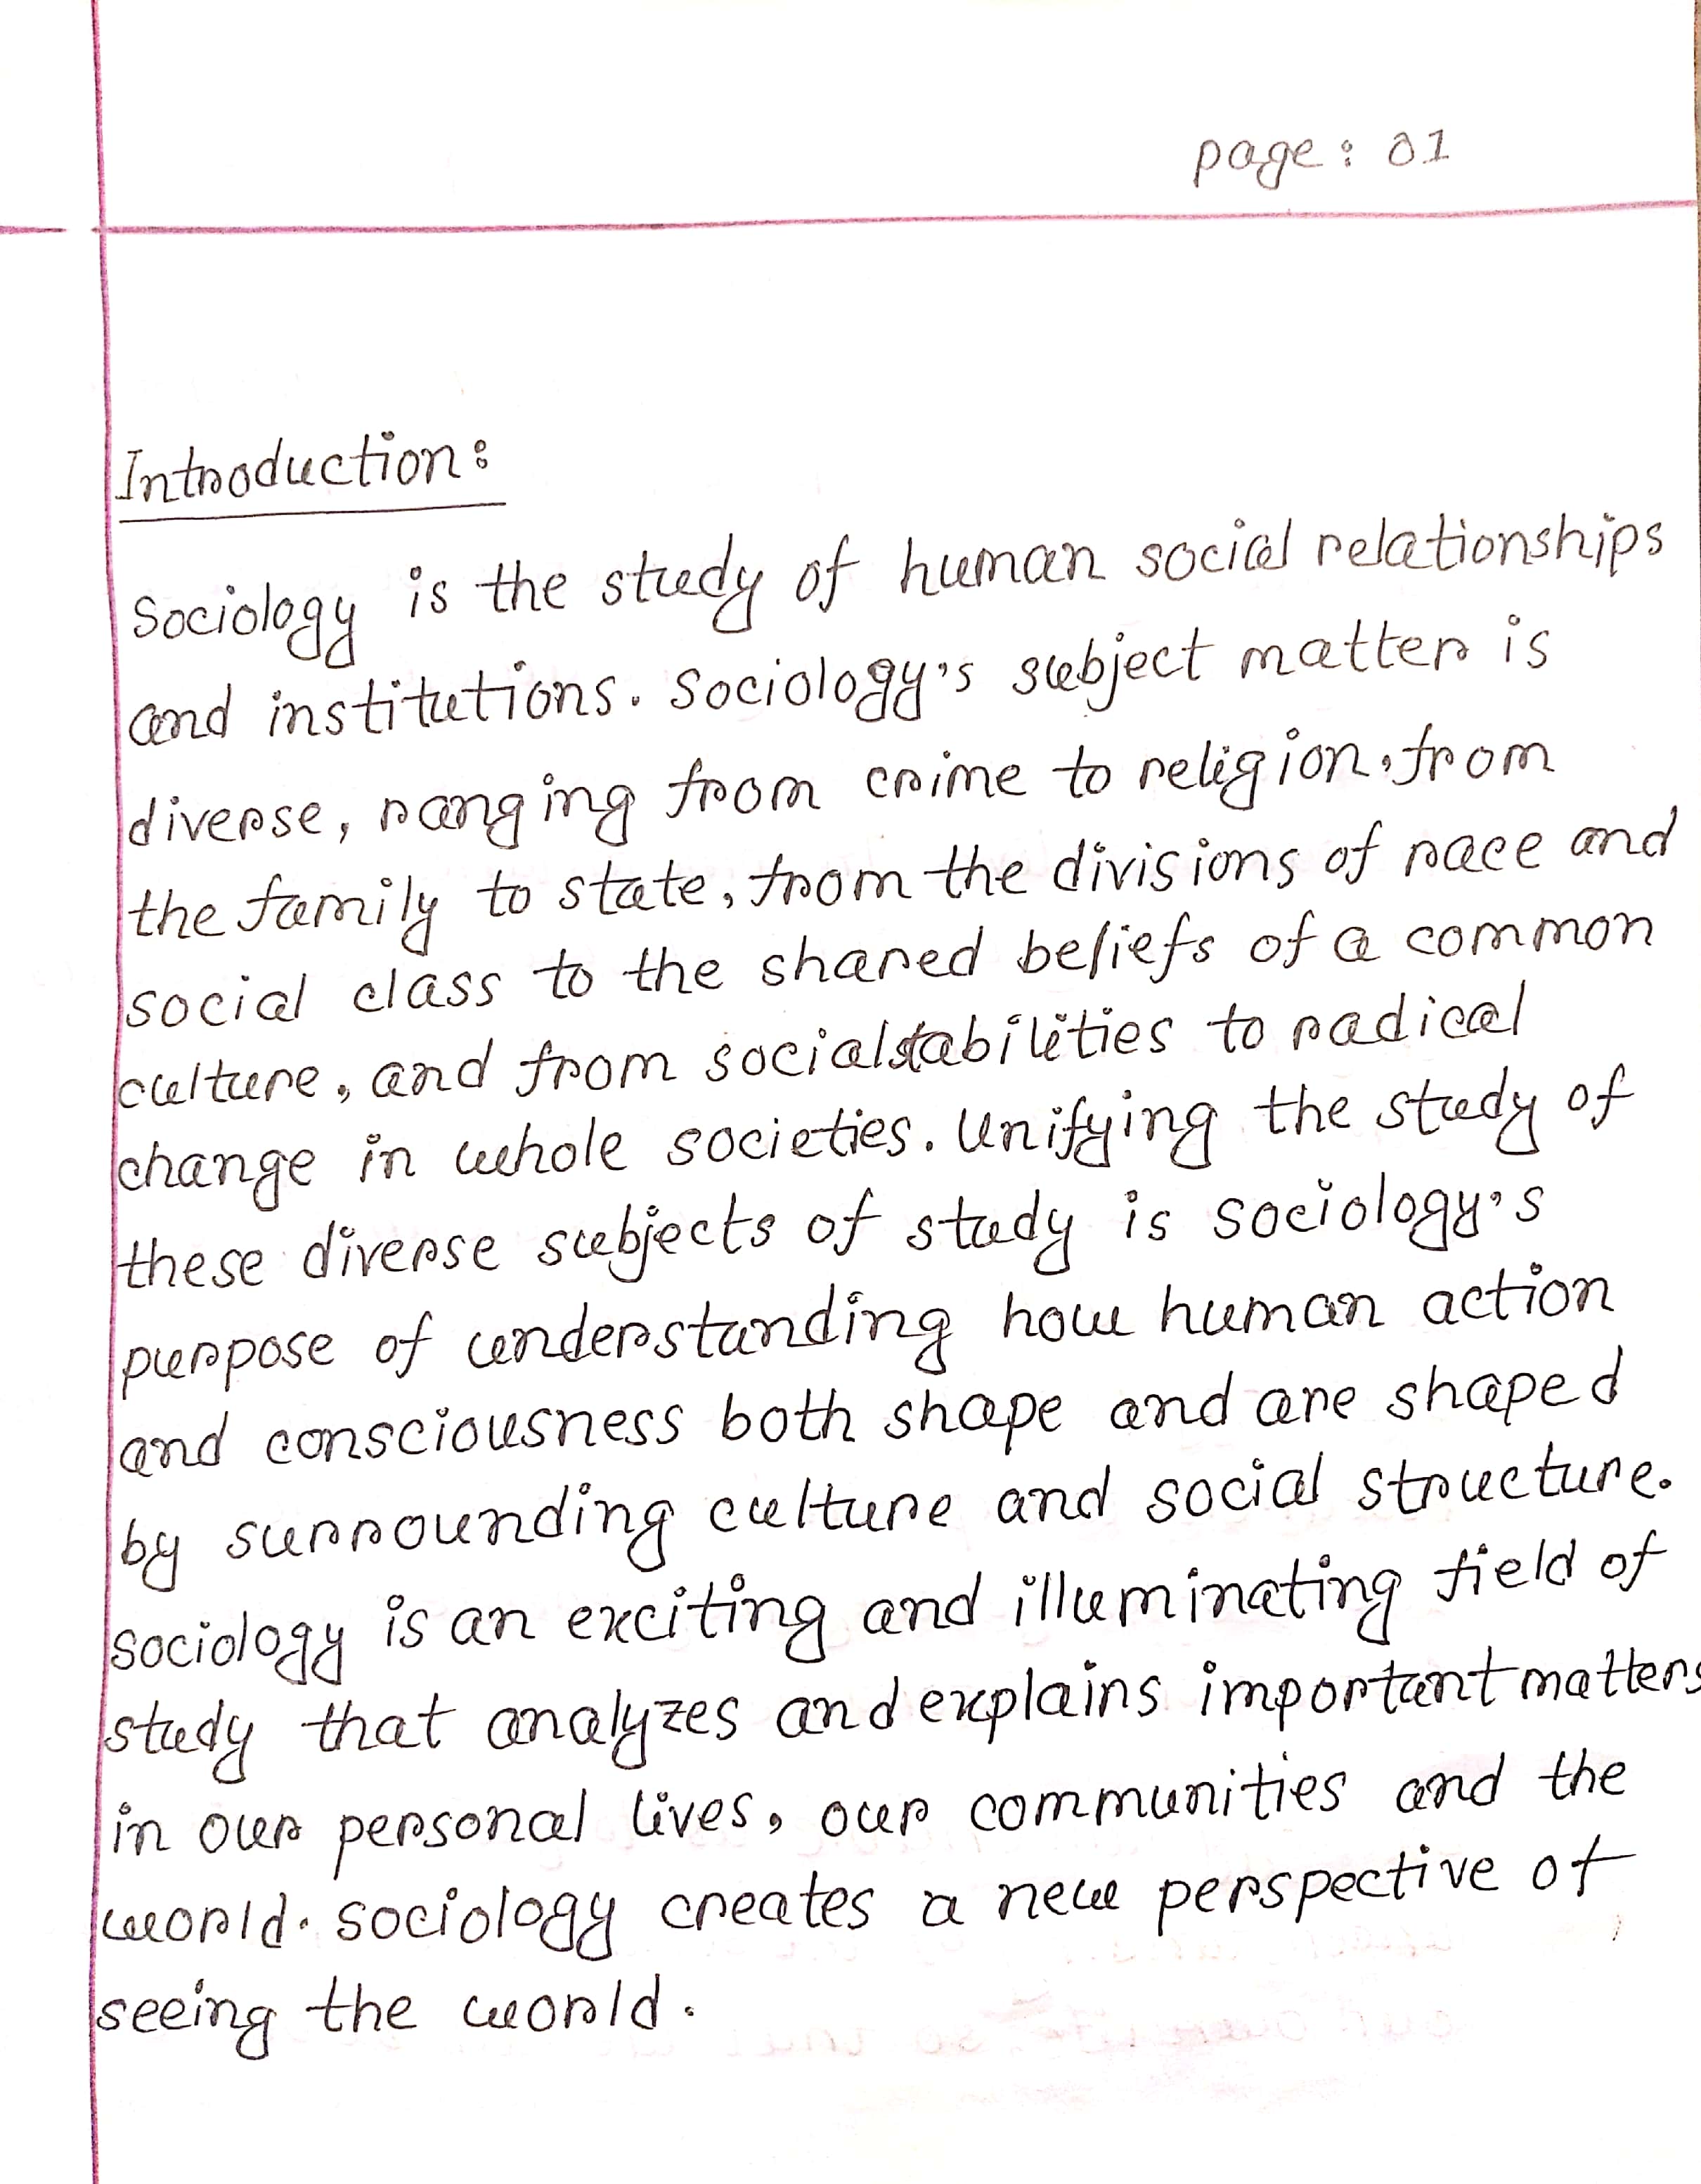 page: 01
Introduction:
Sociology is the study of human social relationships
and institutions. Sociology's subject matter is
diverse, ranging from crime to religion, from
the family to state, from the divisions of race and
social class to the shared beliefs of a common
culture, and from social stabilities to radical
change in whole societies. Unifying the study of
these diverse subjects of study is sociology's
purpose of understanding how human action
and consciousness both shape and are shaped
by surrounding culture and social structure.
sociology is an exciting and illuminating field of
study that analyzes and explains important matters
in our personal lives, our communities and the
world. Sociology creates a new perspective of
seeing the world.